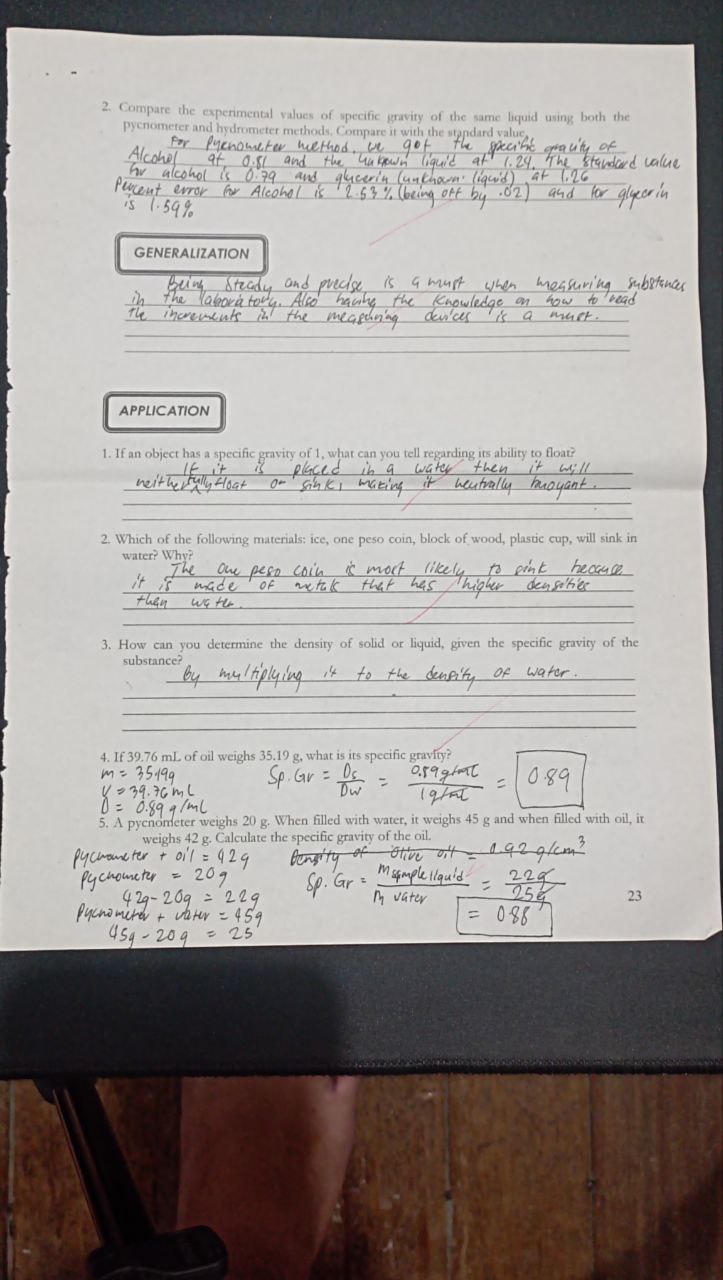 2. Compare the experimental values of specific gravity of the same liquid using both the
pycnometer and hydrometer methods. Compare it with the standard value.
For Pycnometer method, we got the specific gravity of
Alcohol at 0.81 and the unknown liquid at 1.24. The standard value
for alcohol is 0.79 and glycerin (unknown liquid) at 1.26
Percent error for Alcohol is 2.53% (being off by .02) and for glycerin
is 1.59%
GENERALIZATION
Being steady and precise is a must when measuring substances
in the laboratory. Also having the knowledge on how to read
the increments in the measuring devices is a must.
APPLICATION
1. If an object has a specific gravity of 1, what can you tell regarding its ability to float?
If it is placed in a water then it will
neither fully float or sink, making it neutrally buoyant.
2. Which of the following materials: ice, one peso coin, block of wood, plastic cup, will sink in
water? Why?
The one peso coin is most likely to sink because
it is made of metals that has higher densities
than water.
3. How can you determine the density of solid or liquid, given the specific gravity of the
substance?
By multiplying it to the density of water.
4. If 39.76 mL of oil weighs 35.19 g, what is its specific gravity?
m = 35.19g
V = 39.76 mL
D = 0.89 g/mL
Sp. Gr = Ds/Dw = 0.89 g/mL / 1 g/mL = 0.89
5. A pycnometer weighs 20 g. When filled with water, it weighs 45 g and when filled with oil, it
weighs 42 g. Calculate the specific gravity of the oil.
Pycnometer + oil = 42g
Pycnometer = 20g
42g - 20g = 22g
Pycnometer + water = 45g
45g - 20g = 25
Density of olive oil = 0.92 g/cm³
Sp. Gr = m sample liquid / m water = 22g / 25g
= 0.88
23